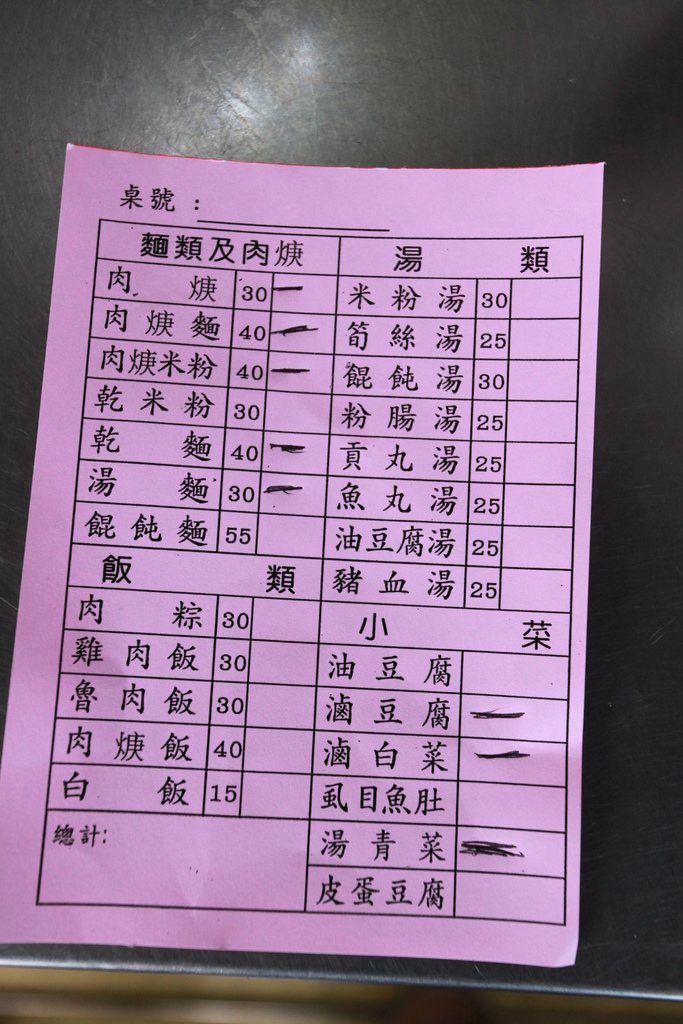 桌號：
麵類及肉焿
肉焿 30
肉焿麵 40
肉焿米粉 40
乾米粉 30
乾麵 40
湯麵 30
餛飩麵 55
飯類
肉粽 30
雞肉飯 30
魯肉飯 30
肉焿飯 40
白飯 15
總計:
湯類
米粉湯 30
筍絲湯 25
餛飩湯 30
粉腸湯 25
貢丸湯 25
魚丸湯 25
油豆腐湯 25
豬血湯 25
小菜
油豆腐
滷豆腐
滷白菜
虱目魚肚
湯青菜
皮蛋豆腐